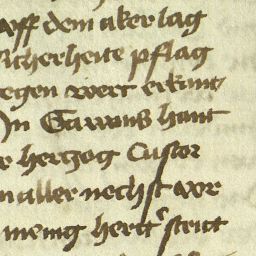 vff dem aker lag
sicherheite pflag
egen wert erkant
In Gawans hant
r herczog Castor
n aller nechst vor
meing hert' streit